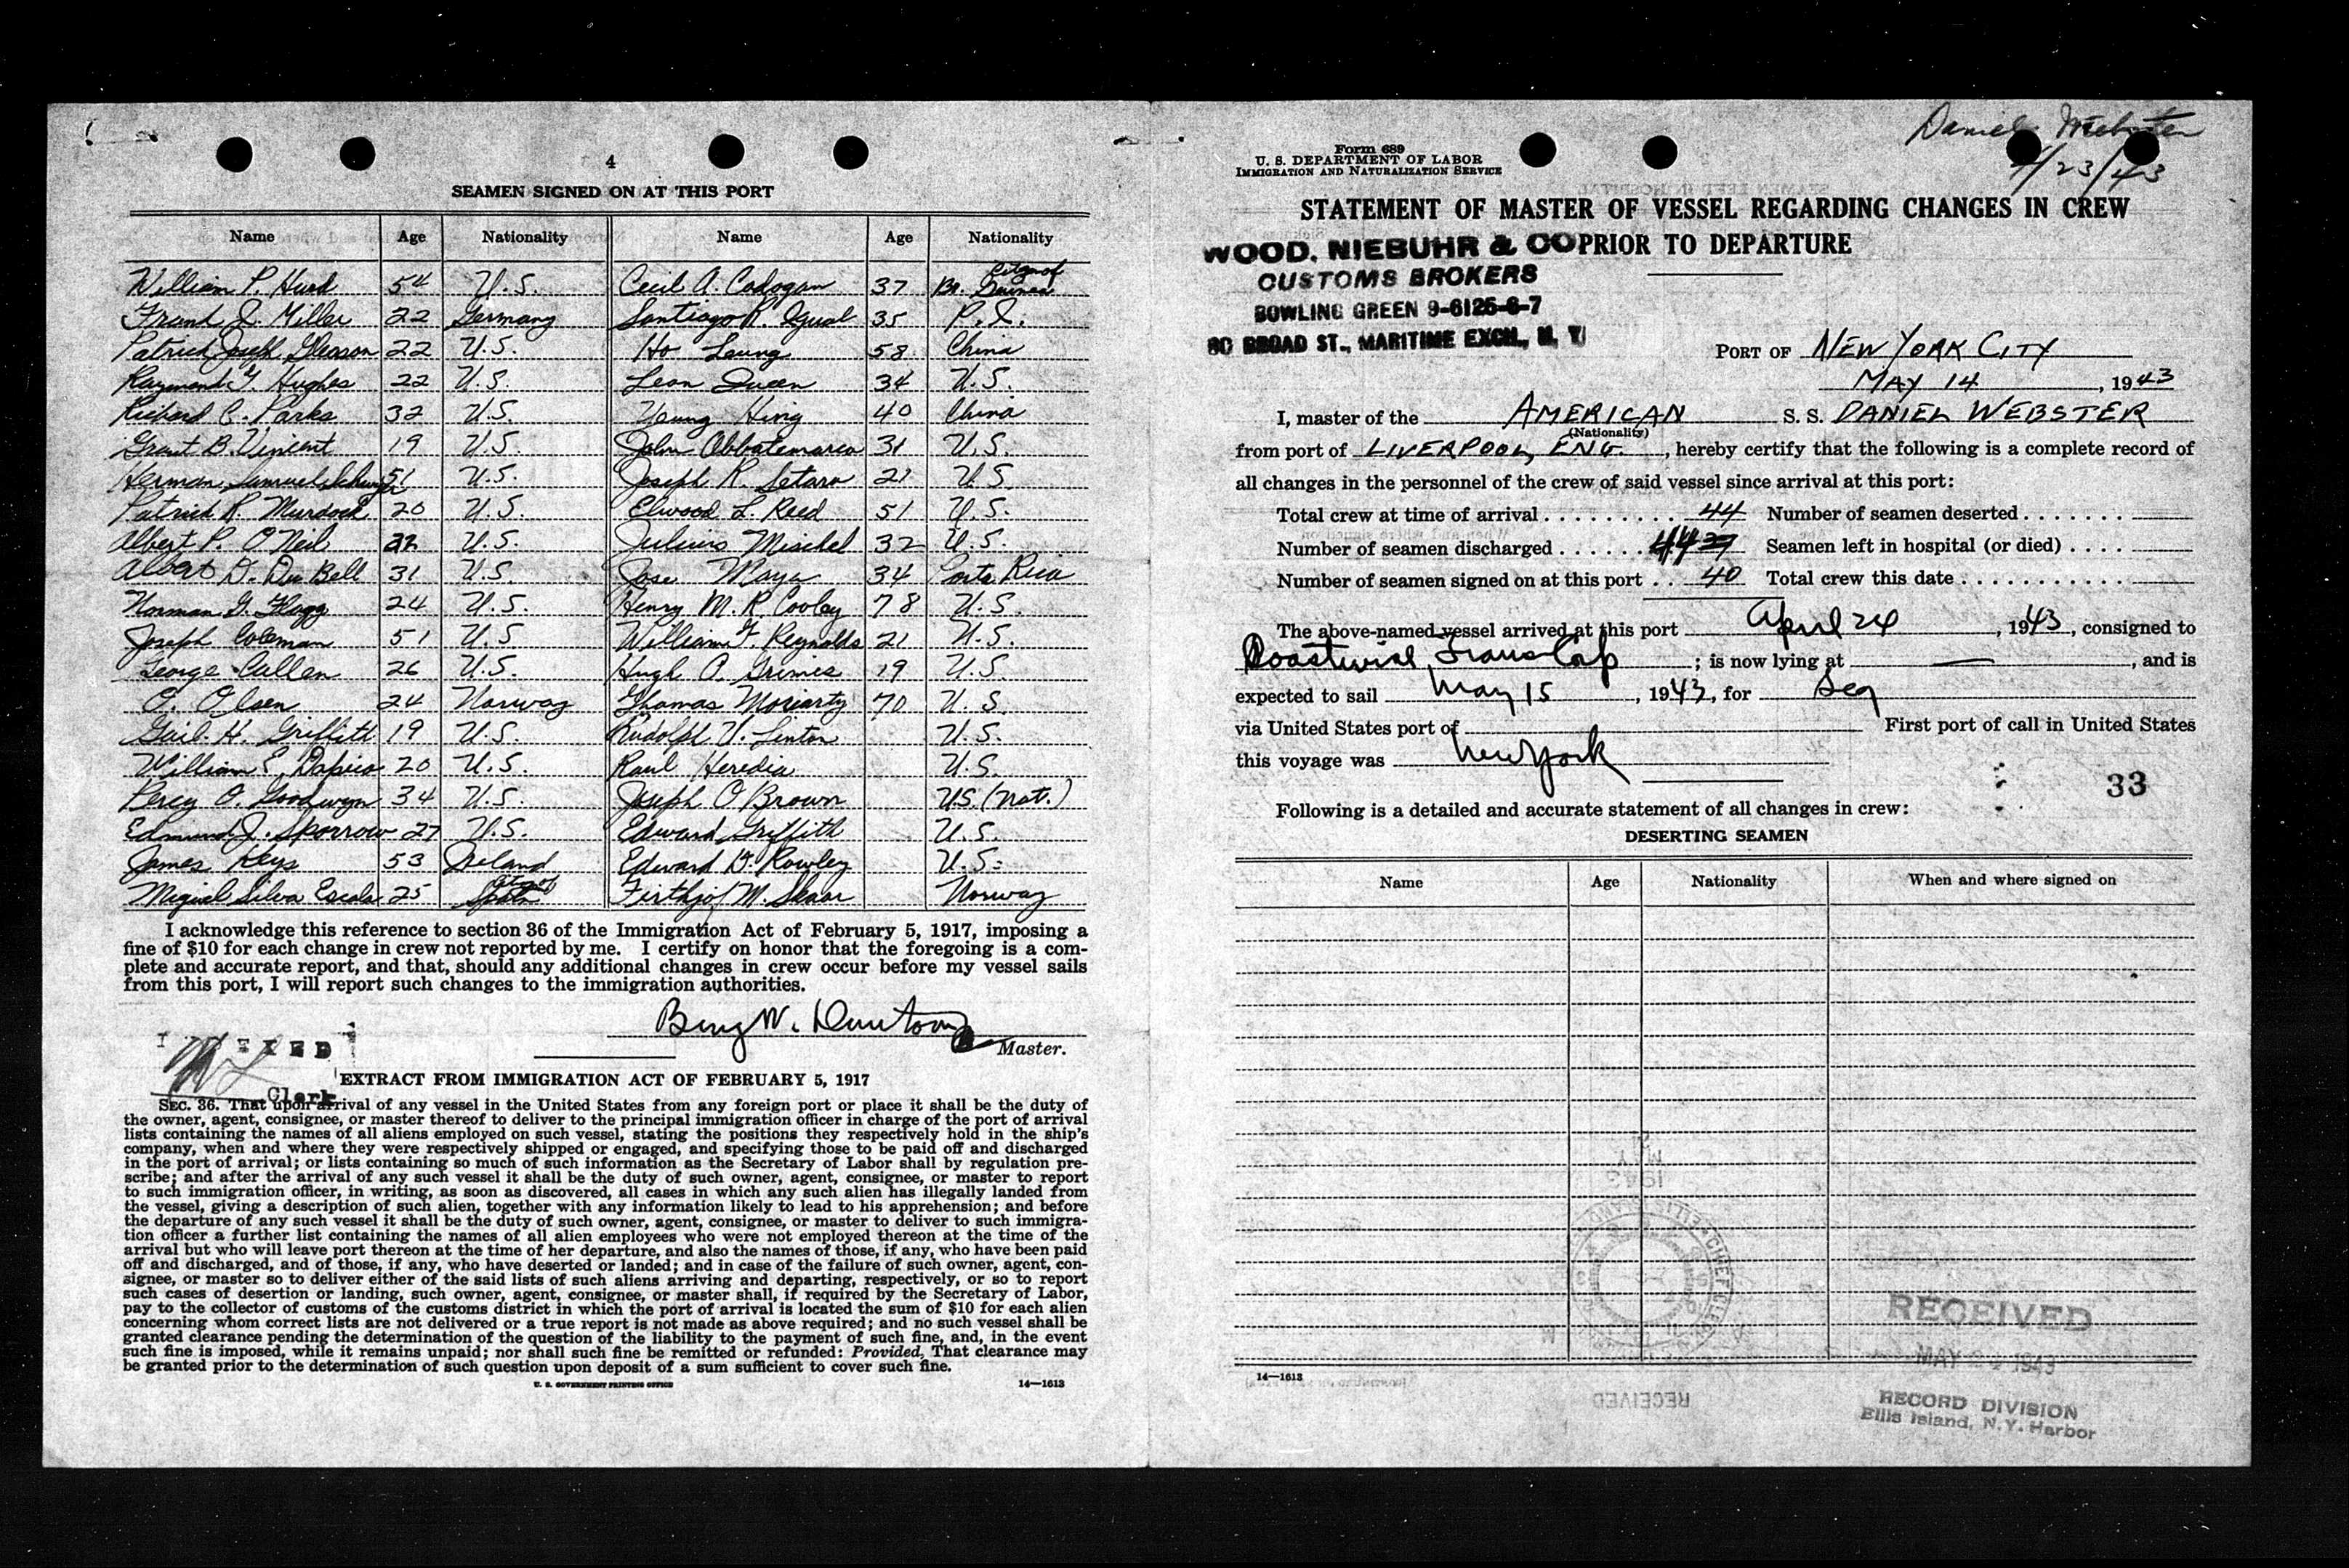 4
SEAMEN SIGNED ON AT THIS PORT
Name Age Nationality Name Age Nationality
William P. Hurd 54 U.S. Cecil A. Cadogan 37 Citz of Br. Guinea
Frank J. Miller 22 Germany Santiago R. Igual 35 P.I.
Patrick Joseph Gleason 22 U.S. Ho Leung 58 China
Raymond F. Hughes 22 U.S. Leon Queen 34 U.S.
Richard C. Parks 32 U.S. Young Hing 40 China
Grant B. Vincent 19 U.S. John Abbatemarco 31 U.S.
Herman Samuel 51 U.S. Joseph R. Setaro 21 U.S.
Patrick R. Murdock 20 U.S. Elwood L. Reed 51 U.S.
Albert P. O'Neil U.S. Julius Mischel 32 U.S.
Albert D. Du Bell 31 U.S. Jose Maya 34 Porto Rica
Norman G. Flagg 24 U.S. Henry M. R. Cooley 78 U.S.
Joseph Coleman 51 U.S William F. Reynolds 21 U.S.
George Cullen 26 U.S. Hugh O. Grimes 19 U.S.
O. Olsen 24 Norway Thomas Moriarty 70 U.S
Gail H. Griffith 19 U.S. Rudolph V. Linton U.S.
William E. Dapico 20 U.S. Raul Heredia U.S.
Percy O. Goodwyn 34 U.S. Joseph O Brown U.S. (Nat.)
Edmund J. Sporrow 27 U.S. Edward Griffith U.S.
James Keys 53 Ireland Edward D. Rowley U.S.
Miguel Silva Escala 25 Citz of Spain Firthjof M. Skaar Norway
I acknowledge this reference to section 36 of the Immigration Act of February 5, 1917, imposing a
fine of $10 for each change in crew not reported by me. I certify on honor that the foregoing is a com-
plete and accurate report, and that, should any additional changes in crew occur before my vessel sails
from this port, I will report such changes to the immigration authorities.
Benj W.
Master.
EXED
Clerk
EXTRACT FROM IMMIGRATION ACT OF FEBRUARY 5, 1917
SEC. 36. That upon arrival of any vessel in the United States from any foreign port or place it shall be the duty of
the owner, agent, consignee, or master thereof to deliver to the principal immigration officer in charge of the port of arrival
lists containing the names of all aliens employed on such vessel, stating the positions they respectively hold in the ship's
company, when and where they were respectively shipped or engaged, and specifying those to be paid off and discharged
in the port of arrival; or lists containing so much of such information as the Secretary of Labor shall by regulation pre-
scribe; and after the arrival of any such vessel it shall be the duty of such owner, agent, consignee, or master to report
to such immigration officer, in writing, as soon as discovered, all cases in which any such alien has illegally landed from
the vessel, giving a description of such alien, together with any information likely to lead to his apprehension; and before
the departure of any such vessel it shall be the duty of such owner, agent, consignee, or master to deliver to such immigra-
tion officer a further list containing the names of all alien employees who were not employed thereon at the time of the
arrival but who will leave port thereon at the time of her departure, and also the names of those, if any, who have been paid
off and discharged, and of those, if any, who have deserted or landed; and in case of the failure of such owner, agent, con-
signee, or master so to deliver either of the said lists of such aliens arriving and departing, respectively, or so to report
such cases of desertion or landing, such owner, agent, consignee, or master shall, if required by the Secretary of Labor,
pay to the collector of customs of the customs district in which the port of arrival is located the sum of $10 for each alien
concerning whom correct lists are not delivered or a true report is not made as above required; and no such vessel shall be
granted clearance pending the determination of the question of the liability to the payment of such fine, and, in the event
such fine is imposed, while it remains unpaid; nor shall such fine be remitted or refunded: Provided, That clearance may
be granted prior to the determination of such question upon deposit of a sum sufficient to cover such fine.
U. S. GOVERNMENT PRINTING OFFICE 14—1613
Daniel Webster
4/23/43
Form 689
U. S. DEPARTMENT OF LABOR
IMMIGRATION AND NATURALIZATION SERVICE
STATEMENT OF MASTER OF VESSEL REGARDING CHANGES IN CREW
PRIOR TO DEPARTURE
WOOD, NIEBUHR & CO
CUSTOMS BROKERS
BOWLING GREEN 9-6125-6-7
80 BROAD ST., MARITIME EXCH., N. Y.
PORT OF NEW YORK CITY
MAY 14, 1943
I, master of the AMERICAN S. S. DANIEL WEBSTER
(Nationality)
from port of LIVERPOOL, ENG., hereby certify that the following is a complete record of
all changes in the personnel of the crew of said vessel since arrival at this port:
Total crew at time of arrival 44 Number of seamen deserted
Number of seamen discharged Seamen left in hospital (or died)
Number of seamen signed on at this port 40 Total crew this date
The above-named vessel arrived at this port April 24, 1943, consigned to
; is now lying at —, and is
expected to sail May 15, 1943, for Sea
via United States port of First port of call in United States
this voyage was New York
33
Following is a detailed and accurate statement of all changes in crew:
DESERTING SEAMEN
Name Age Nationality When and where signed on
RECEIVED
MAY 1943
RECORD DIVISION
Ellis Island, N.Y. Harbor
14—1613
RECEIVED